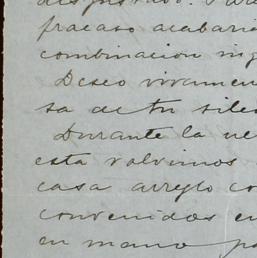 fracaso acabaría
combinacion
Deseo vivamen
sa de tu silen
Durante la
esta volvimos
casa arreglo co
convenidos en
en mano